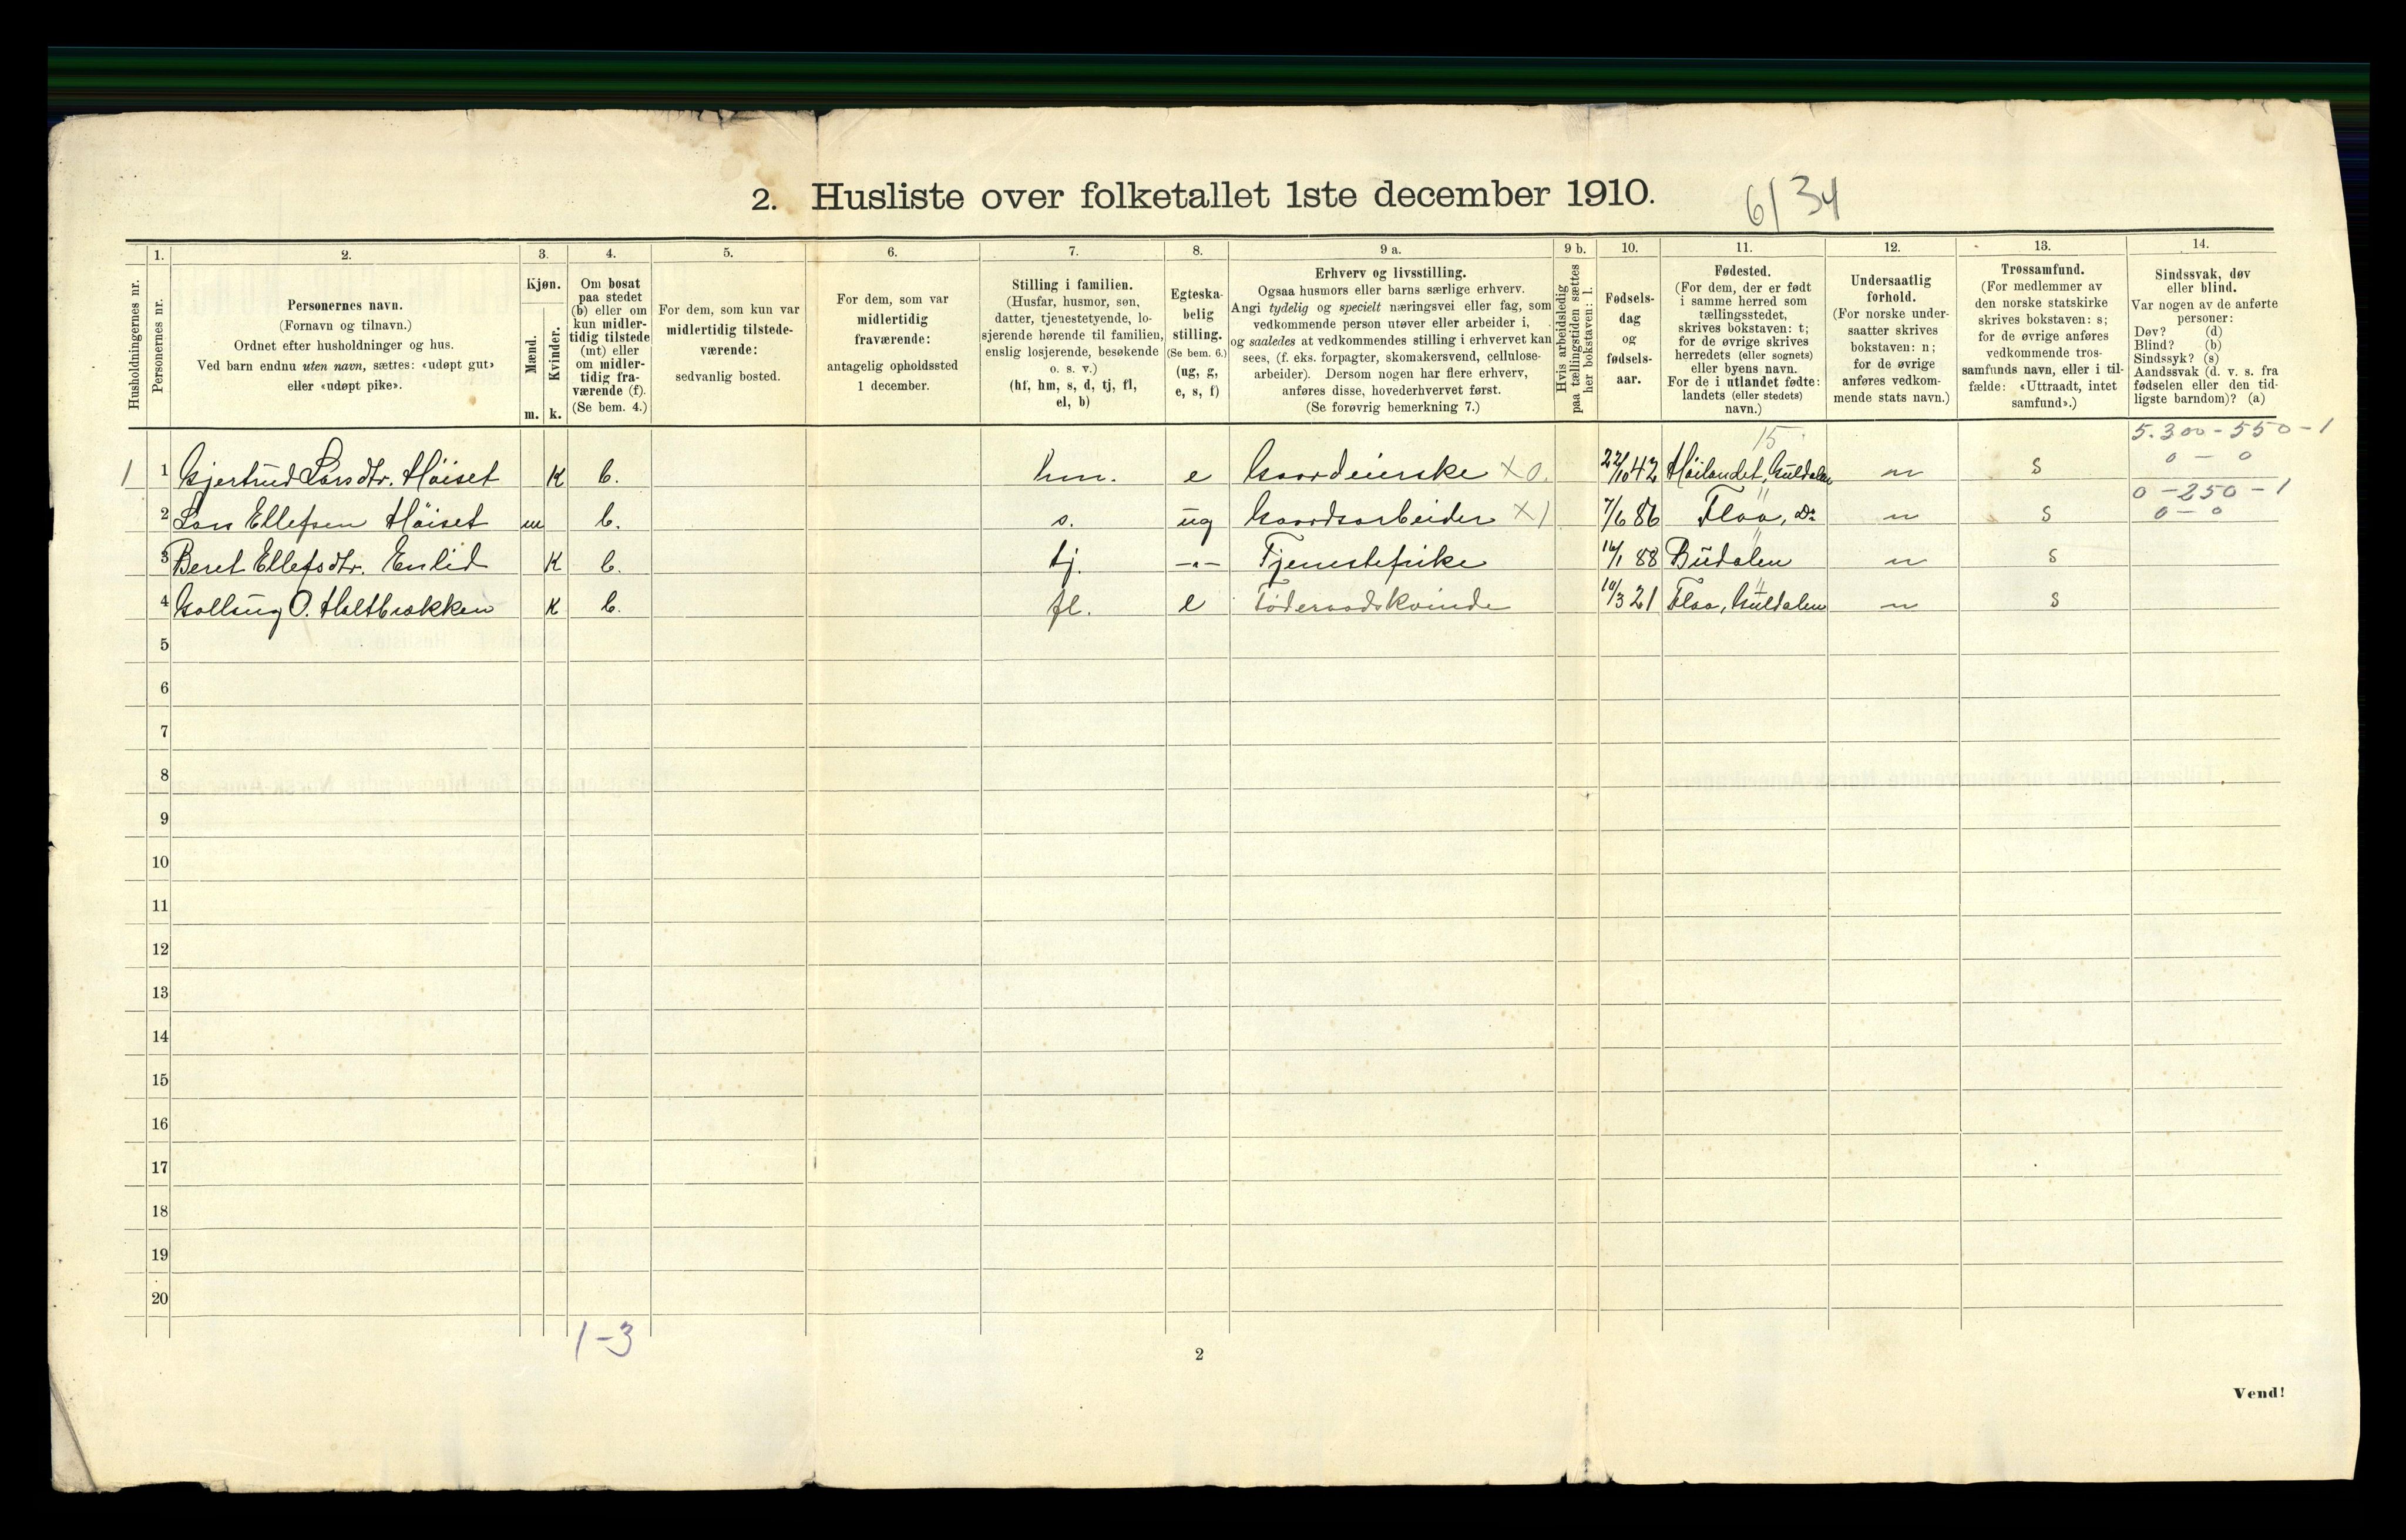 2. Husliste over folketallet 1ste december 1910.
6/34
Husholdningernes nr.
1.
Personernes nr.
2.
Personernes navn.
(Fornavn og tilnavn.)
Ordnet efter husholdninger og hus.
Ved barn endnu uten navn, sættes: «udøpt gut»
eller «udøpt pike».
3.
Kjøn.
Mænd.
Kvinder.
m. k.
4.
Om bosat
paa stedet
(b) eller om
kun midler-
tidig tilstede
(mt) eller
om midler-
tidig fra-
værende (f).
(Se bem. 4.)
5.
For dem, som kun var
midlertidig tilstede-
værende:
sedvanlig bosted.
6.
For dem, som var
midlertidig
fraværende:
antagelig opholdssted
1 december.
7.
Stilling i familien.
(Husfar, husmor, søn,
datter, tjenestetyende, lo-
sjerende hørende til familien,
enslig losjerende, besøkende
o. s. v.)
(hf, hm, s, d, tj, fl,
el, b)
8.
Egteska-
belig
stilling.
(Se bem. 6.)
(ug, g,
e, s, f)
9 a.
Erhverv og livsstilling.
Ogsaa husmors eller barns særlige erhverv.
Angi tydelig og specielt næringsvei eller fag, som
vedkommende person utøver eller arbeider i,
og saaledes at vedkommendes stilling i erhvervet kan
sees, (f. eks. forpagter, skomakersvend, cellulose-
arbeider). Dersom nogen har flere erhverv,
anføres disse, hovederhvervet først.
(Se forøvrig bemerkning 7.)
9 b.
Hvis arbeidsledig
paa tællingstiden sættes
her bokstaven: l.
10.
Fødsels-
dag
og
fødsels-
aar.
11.
Fødested.
(For dem, der er født
i samme herred som
tællingsstedet,
skrives bokstaven: t;
for de øvrige skrives
herredets (eller sognets)
eller byens navn.
For de i utlandet fødte:
landets (eller stedets)
navn.)
12.
Undersaatlig
forhold.
(For norske under-
saatter skrives
bokstaven: n;
for de øvrige
anføres vedkom-
mende stats navn.)
13.
Trossamfund.
(For medlemmer av
den norske statskirke
skrives bokstaven: s;
for de øvrige anføres
vedkommende tros-
samfunds navn, eller i til-
fælde: «Uttraadt, intet
samfund».)
14.
Sindssvak, døv
eller blind.
Var nogen av de anførte
personer:
Døv? (d)
Blind? (b)
Sindssyk? (s)
Aandssvak (d. v. s. fra
fødselen eller den tid-
ligste barndom)? (a)
15 5.300-550-1
1 1 Gjertrud Larsdtr. Höiset K b. hm. e Gaardeierske X0. 22/10 42 Höilandet, Guldalen n s 0-0
0-250-1
2 Lars Ellefsen Höiset m b. s. ug Gaardsarbeider X1 7/6 86 Flaa, Do n s 0-0
3 Beret Ellefsdtr. Enlid K b. tj. -"- Tjenestepike 16/1 88 Budalen n s
4 O. Haltbrækken K b. fl. e Föderaadskvinde 10/3 21 Flaa, Guldalen n s
5
6
7
8
9
10
11
12
13
14
15
16
17
18
19
20
1-3
2
Vend!